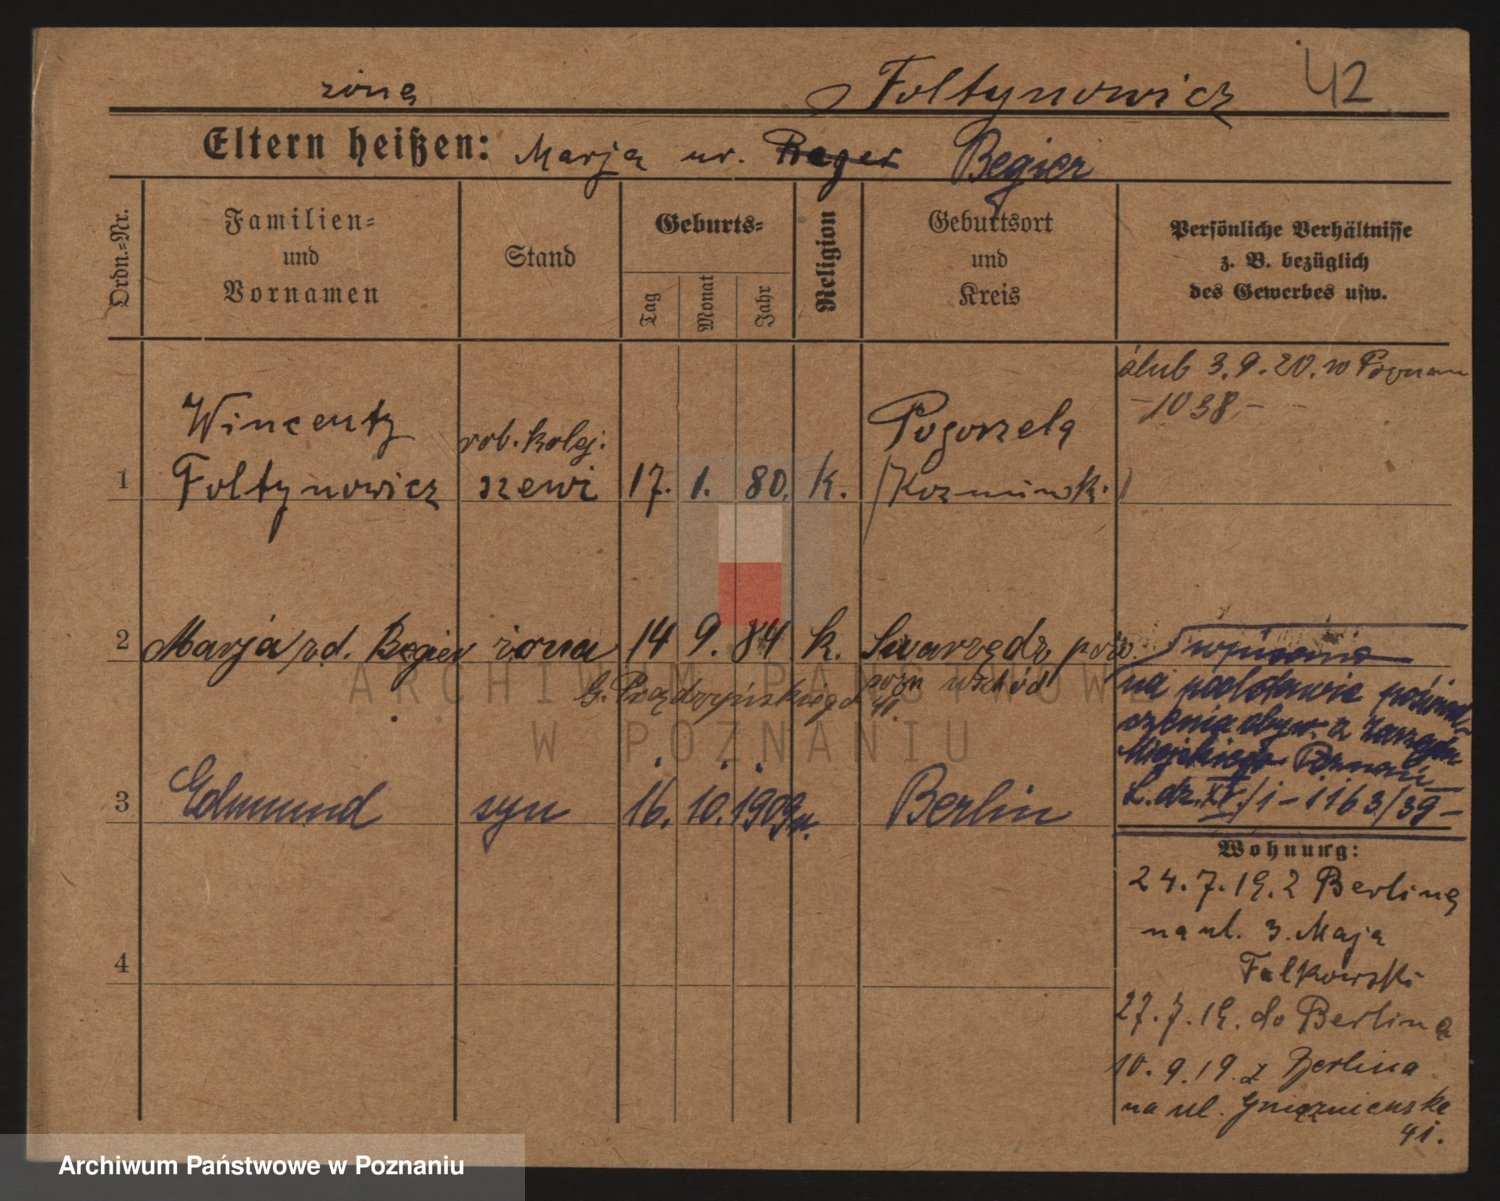 żona Foltynowicz 42
Eltern heißen: Marja ur. Bager Begier
Ordn.=Nr.
Familien=
und
Vornamen
Stand
Geburts=
Tag
Monat
Jahr
Religion
Geburtsort
und
Kreis
Persönliche Verhältnisse
z. B. bezüglich
des Gewerbes usw.
ślub 3.9.20. w Poznan
-1038,-
Wincenty rob. kolej. Pogorzela
1 Foltynowicz szewc 17. 1. 80. k. /Kozminsk. /
2 Marja / rd. Begier żona 14 9. 84 k. Swarzędz pow.
pozn wschód
41.
wpisano
na podstawie poświad-
czenia obyw. z Zarządu
Miejskiego Poznań
L.dz. XI/1-1163/39-
3 Edmund syn 16. 10. 1909r. Berlin
4
Wohnung:
24.7.19. z Berlina
na ul. 3. Maja
Falkowski
27.7.19. do Berlina
10.9.19. z Berlina
na ul. Gnieznienska
41.
ARCHIWUM PAŃSTWOWE
W POZNANIU
Archiwum Państwowe w Poznaniu